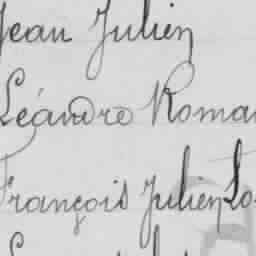 Jean Julien
Léandre Roma
François Julien Lo